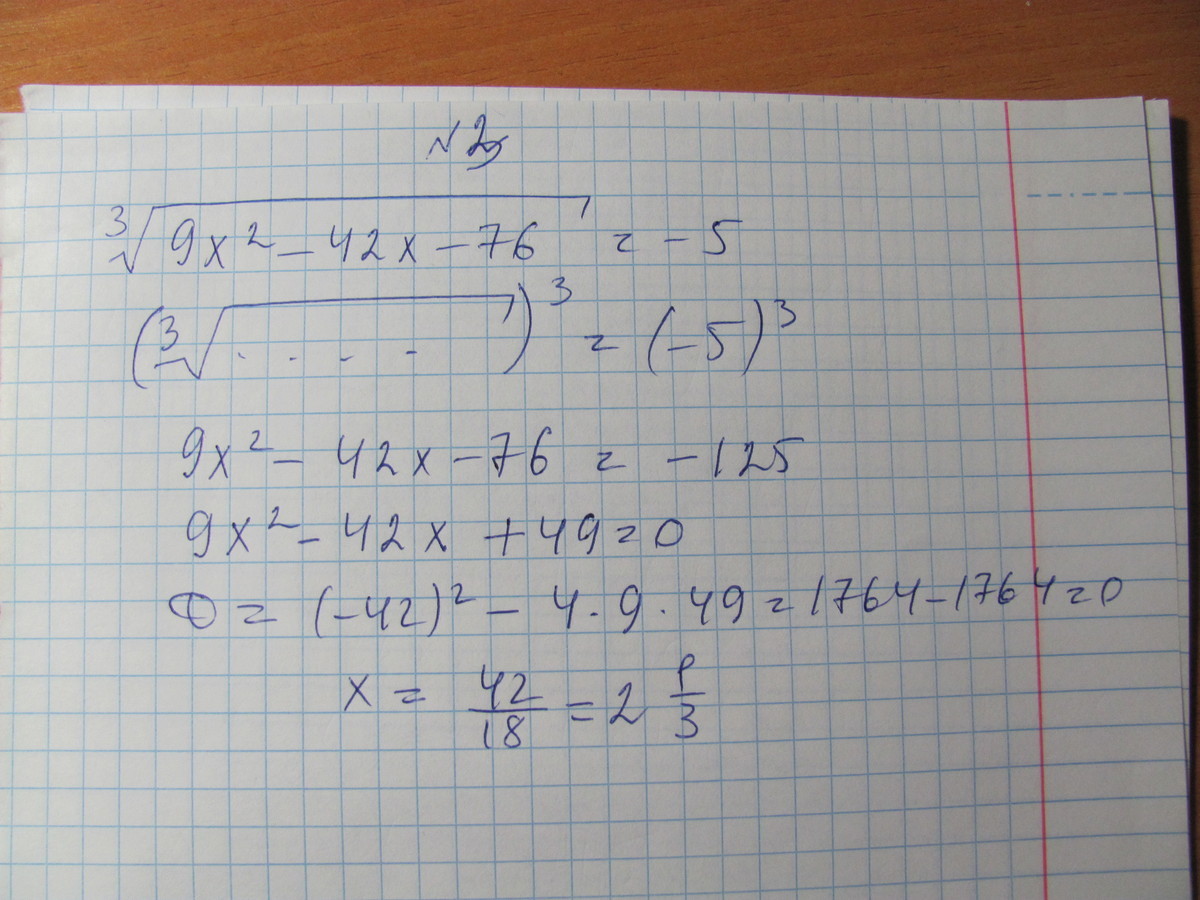 №2
∛(9x² − 42x − 76) = −5
(∛....)³ = (−5)³
9x² − 42x − 76 = −125
9x² − 42x + 49 = 0
D = (−42)² − 4·9·49 = 1764 − 1764 = 0
x = 42/18 = 2 1/3